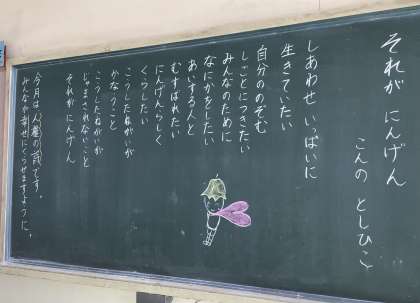 それが にんげん
こんの としひこ
しあわせ いっぱいに
生きていたい
自分ののぞむ
しごとにつきたい
みんなのために
なにかをしたい
あいする人と
むすばれたい
にんげんらしく
くらしたい
こうしたねがいが
かなうこと
こうしたねがいが
じゃまされないこと
それが にんげん
今月は人権の花です。
みんなが幸せにくらせますように。